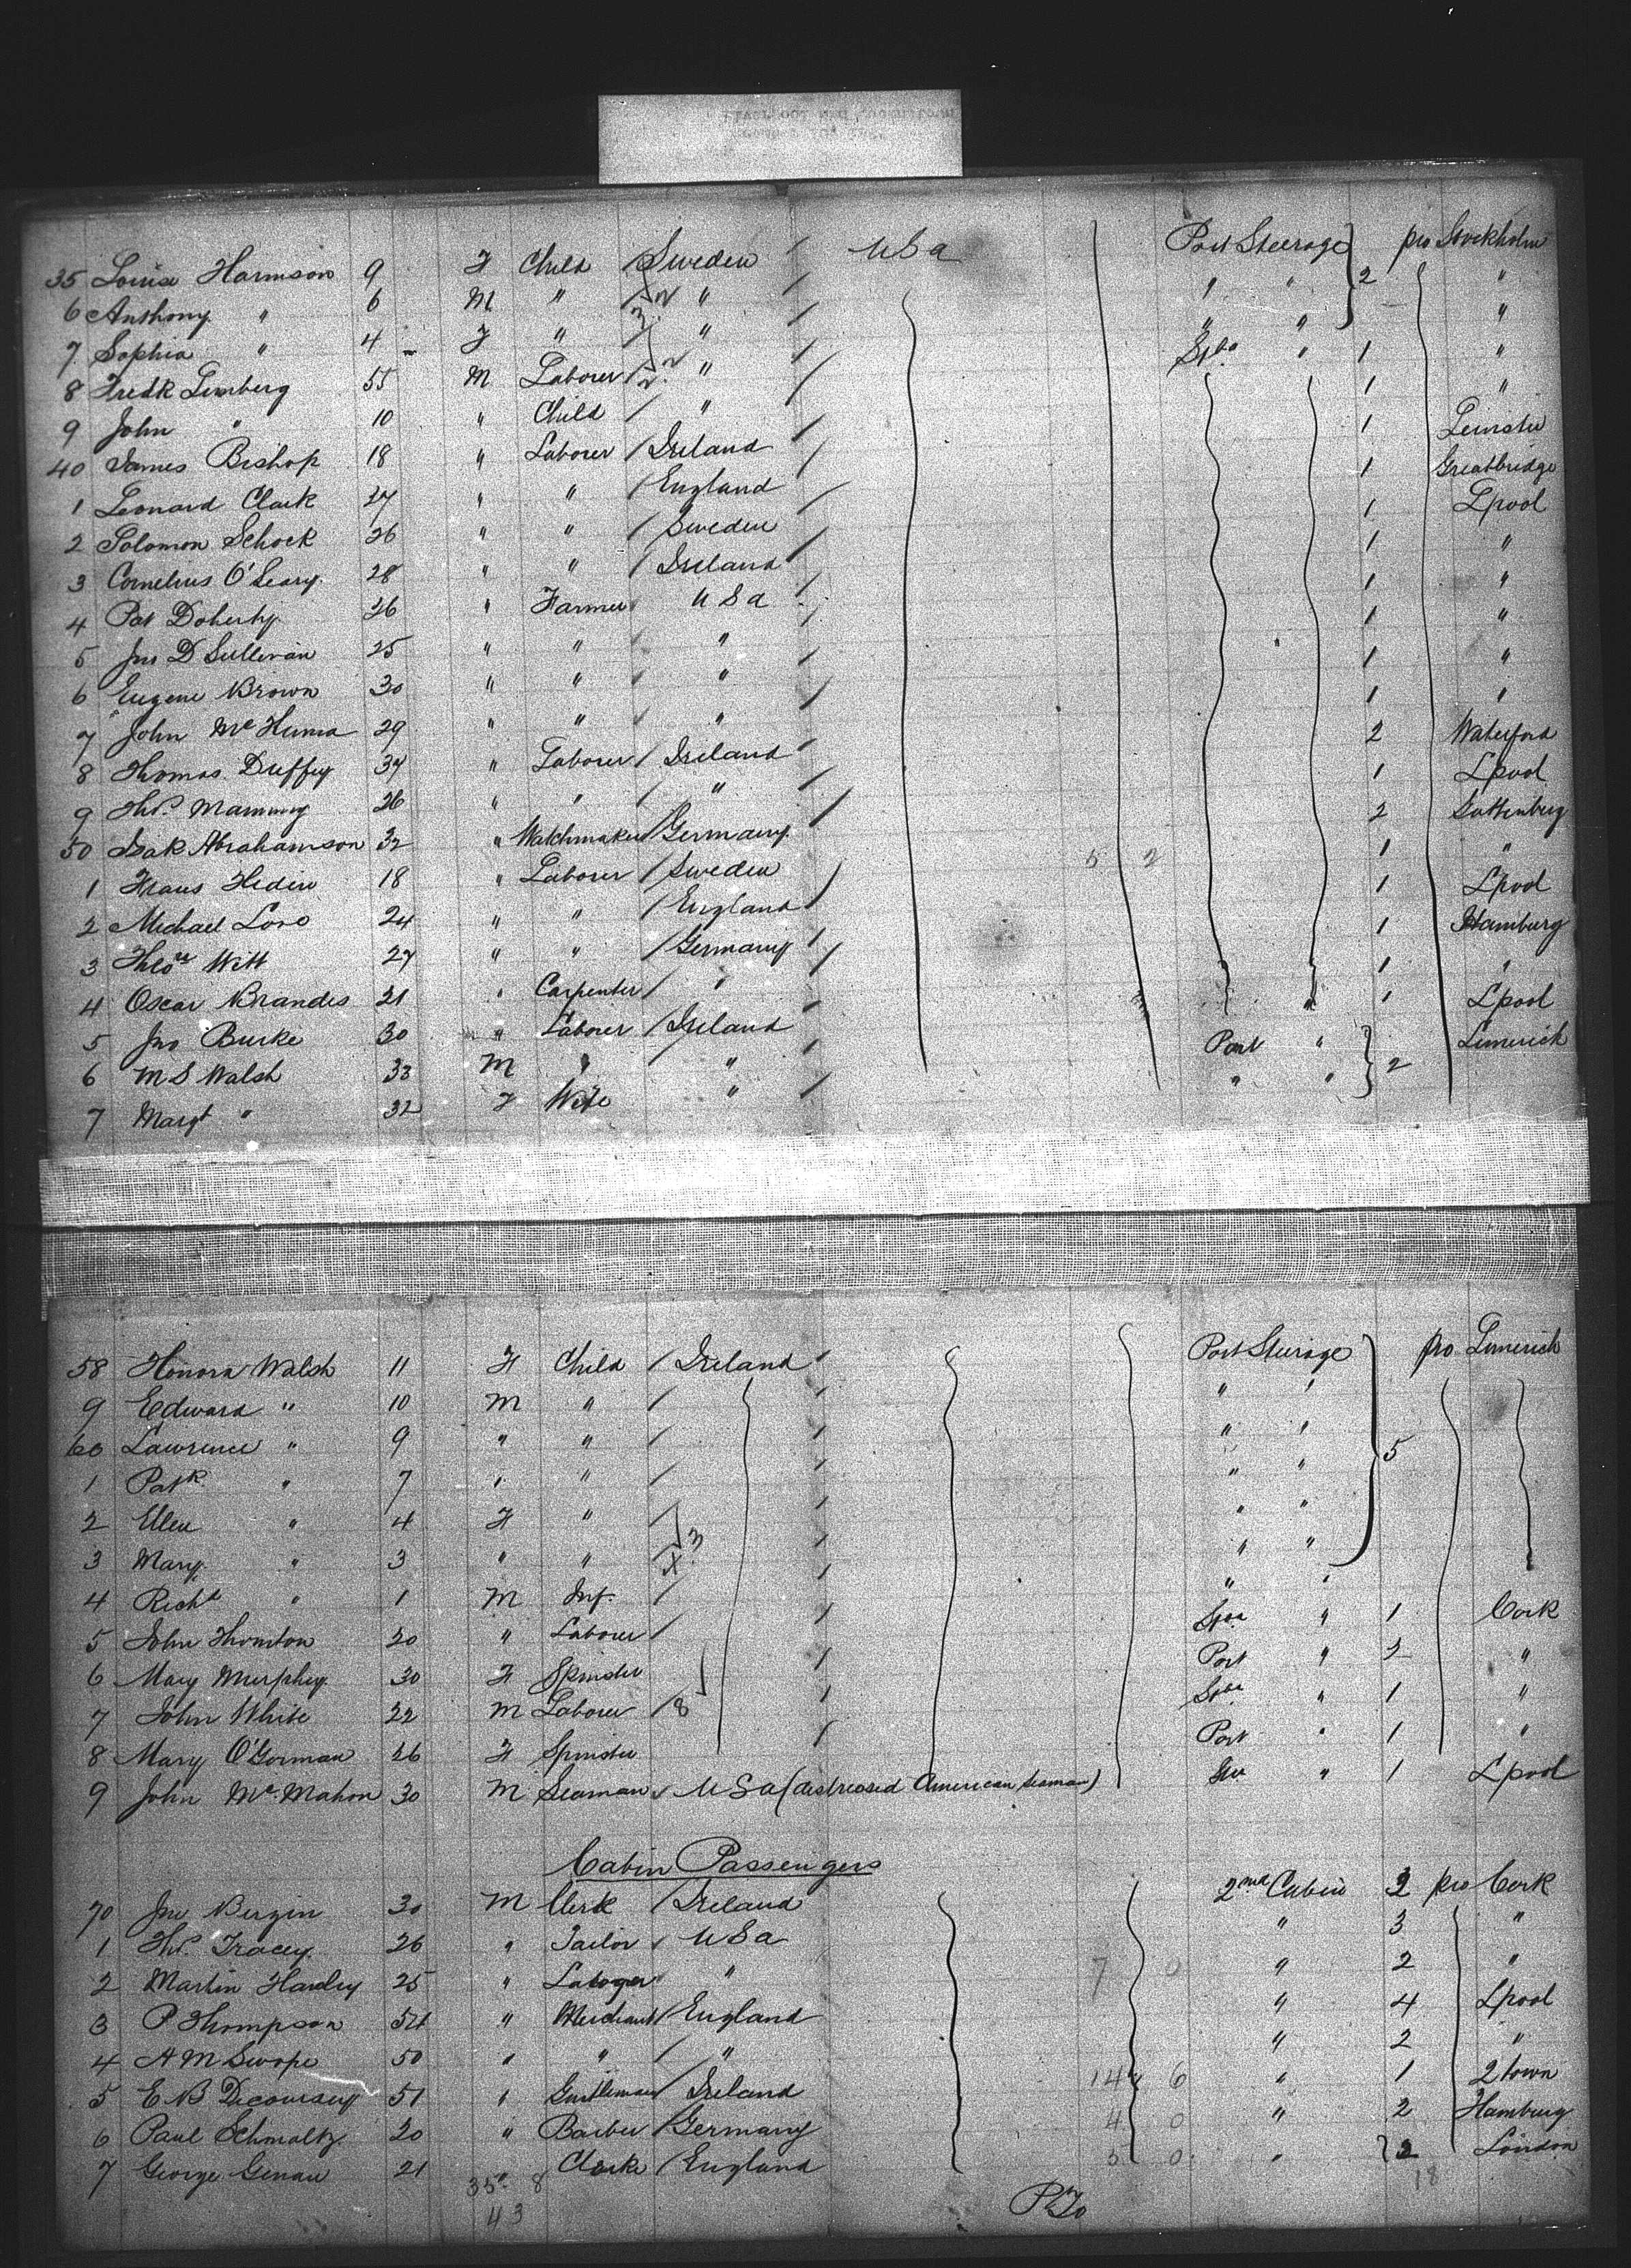 35 Louisa Harmson 9 F Child / Sweden / U S a Port Steerage 2 pro Stockholm
6 Anthony " 6 M " / " / " " "
7 Sophia " 4 F " / " / " " "
8 Fredk Limberg 55 M Laborer / " / Stbd " 1 "
9 John " 10 " Child / " / 1 "
40 James Bishop 18 " Laborer / Ireland / 1 Leinster
1 Leonard Clark 27 " " / England / 1 Greatbridge
2 Solomon Schock 26 " " / Sweden / 1 Lpool
3 Cornelius O'Leary 28 " " / Ireland / 1 "
4 Pat Doherty 26 " Farmer U S a 1 "
5 Jno D Sullivan 25 " " " 1 "
6 Eugene Brown 30 " " " / 1 "
7 John Mc 29 " " " / 1 "
8 Thomas Duffey 34 " Laborer / Ireland / 2 Waterford
9 Thos. 26 " " / " / 1 Lpool
50 Isak Abrahamson 32 " Watchmaker / Germany / 2
1 Hedin 18 " Laborer / Sweden 5 2 1 "
2 Michael 24 " " / England / 1 Lpool
3 Witt 27 " " / Germany / 1 Hamburg
4 Oscar Brandes 21 " Carpenter / " / 1 "
5 Jno Burke 30 " Laborer / Ireland / " 1 Lpool
6 M S Walsh 33 M " " / Port " 2 Limerick
7 Margt " 32 F Wife " / " "
58 Honora Walsh 11 F Child / Ireland / Port Steerage 5 pro Limerick
9 Edward " 10 M " / / " "
60 Lawrence " 9 " " / / " "
1 Patk " 7 " " / / " "
2 Ellen " 4 F " / / " "
3 Mary " 3 " " / / " "
4 Richd " 1 M Inf. / / " "
5 John Thornton 20 " Laborer / / Stbd " 1 Cork
6 Mary Murphey 30 F Spinster / Port " 2 "
7 John White 22 M Laborer / 8 / Stbd " 1 "
8 Mary O'Gorman 26 F Spinster / Port " 1 "
9 John Mc.Mahon 30 M Seaman U S a (distressed American Seaman) " 1 Lpool
Cabin Passengers
70 Jno Bergin 30 M Clerk / Ireland 2nd Cabin 2 pro Cork
1 Thos. Tracey 26 " Tailor U S a " 3 "
2 Martin 25 " Laborer " 7 0 " 2 "
3 P Thompson 54 " Merchant / England " 4 Lpool
4 A M Swope 50 " " / " " 2 "
5 E B Decoursey 51 " Gentleman / Ireland 14 6 " 1 2town
6 Paul Schmaltz 20 " Barber / Germany 4 0 " 2 Hamburg
7 George Genau 21 " Clerk / England 5 0 " 2 London
35 8 18
43 P T o